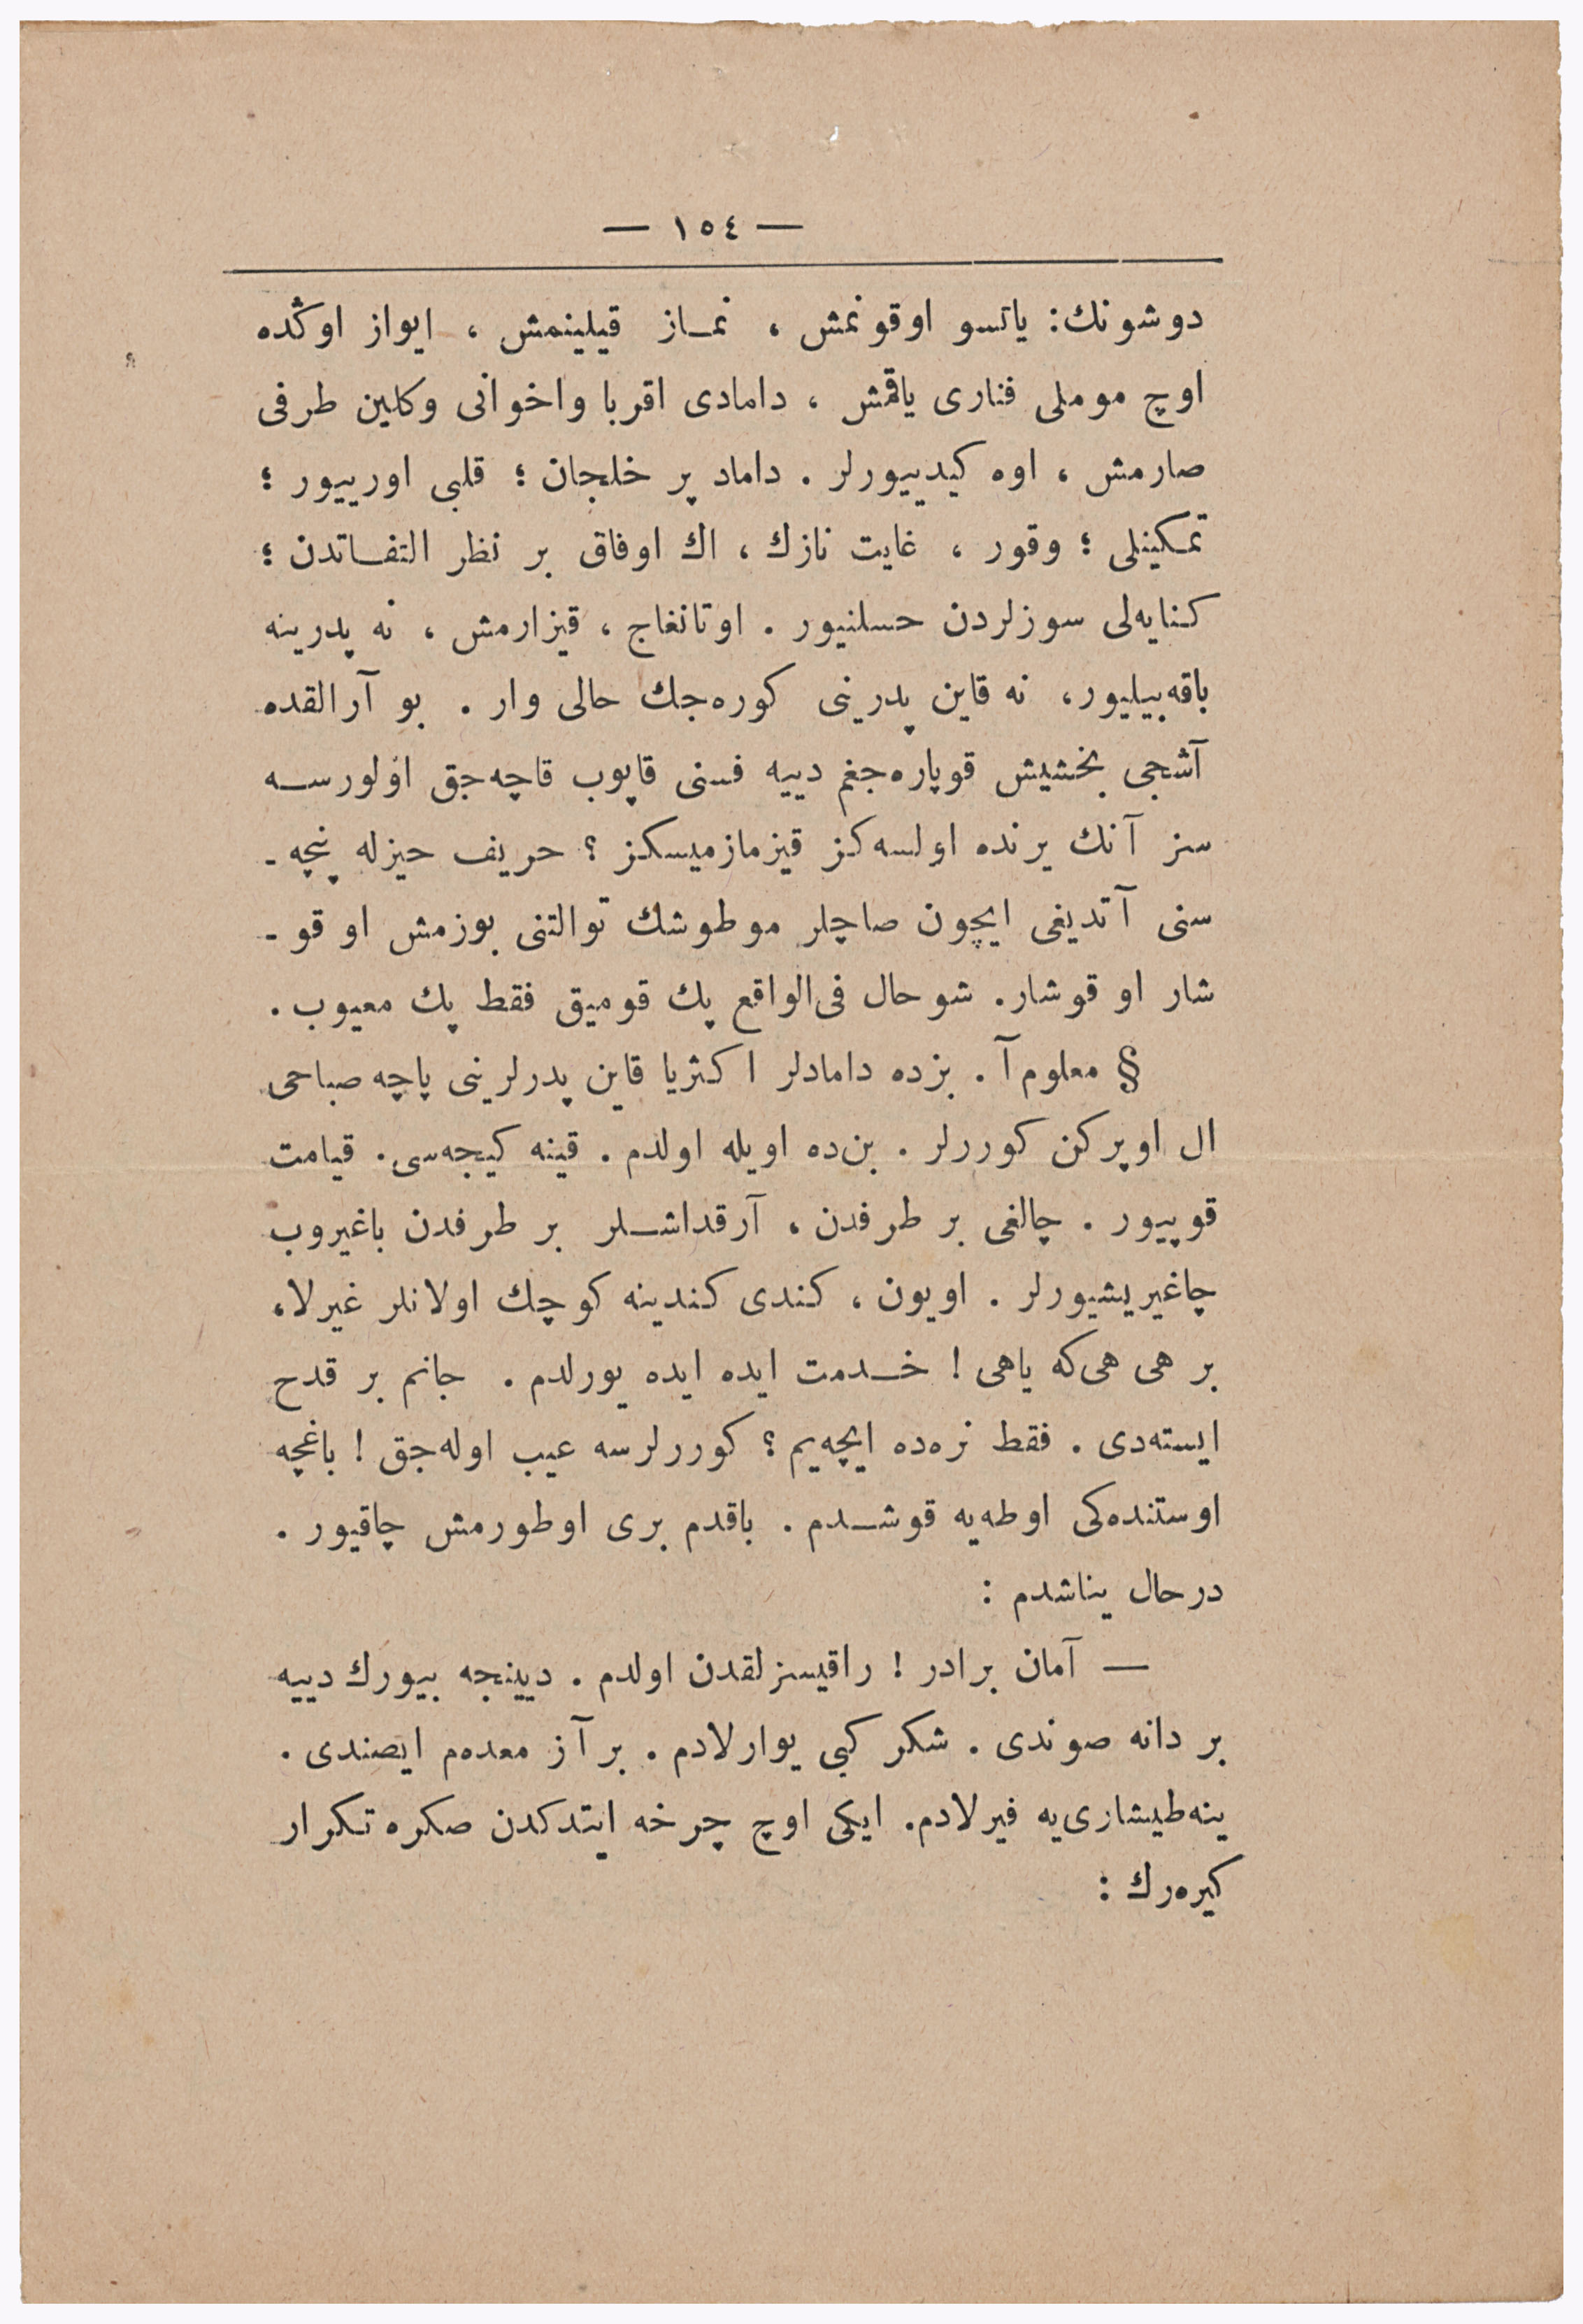 — ١٥٤ —
دوشونك: ياتسو اوقونمش ، نمــاز قيلينمش ، ايواز اوڭده
اوچ موملى فنارى ياقمش ، دامادى اقربا واخوانى وكلين طرفى
صارمش ، اوه كيدييورلر . داماد پر خلجان ؛ قلبى اورييور ؛
تمكينلى ؛ وقور ، غايت نازك ، اك اوفاق بر نظر التفــاتدن ؛
كنايه‌لى سوزلردن حسلنيور . اوتانغاج ، قيزارمش ، نه پدرينه
باقه‌بيليور، نه قاين پدرينى كوره‌جك حالى وار . بو آرالقده
آشجى بخشيش قوپاره‌جغم دييه فسنى قاپوب قاچه‌جق اولورســه
سز آنك يرنده اولسه‌كز قيزمازميسكز ؟ حريف حيزله پنچه ـ
سنى آتديغى ايچون صاچلر موطوشك توالتنى بوزمش او قو ـ
شار او قوشار. شو حال فى‌الواقع پك قوميق فقط پك معيوب .
§ معلوم آ . بزده دامادلر اكثريا قاين پدرلرينى پاچه صباحى
ال اوپركن كوررلر . بن‌ده اويله اولدم . قينه كيجه‌سى . قيامت
قوپيور . چالغى بر طرفدن ، آرقداشــلر بر طرفدن باغيروب
چاغيريشيورلر . اويون ، كندى كندينه كوچك اولانلر غيرلا،
بر هى هى‌كه ياهى ! خــدمت ايده ايده يورلدم . جانم بر قدح
ايسته‌دى . فقط نره‌ده ايچه‌يم ؟ كوررلرسه عيب اوله‌جق ! باغچه
اوستنده‌كى اوطه‌يه قوشــدم . باقدم برى اوطورمش چاقيور .
درحال يناشدم :
— آمان برادر ! راقيسزلقدن اولدم . ديينجه بيورك دييه
بر دانه صوندى . شكر كبى يوارلادم . بر آز معده‌م ايصندى .
ينه طيشارى‌يه فيرلادم. ايكى اوچ چرخه ايتدكدن صكره تكرار
كيره‌رك :